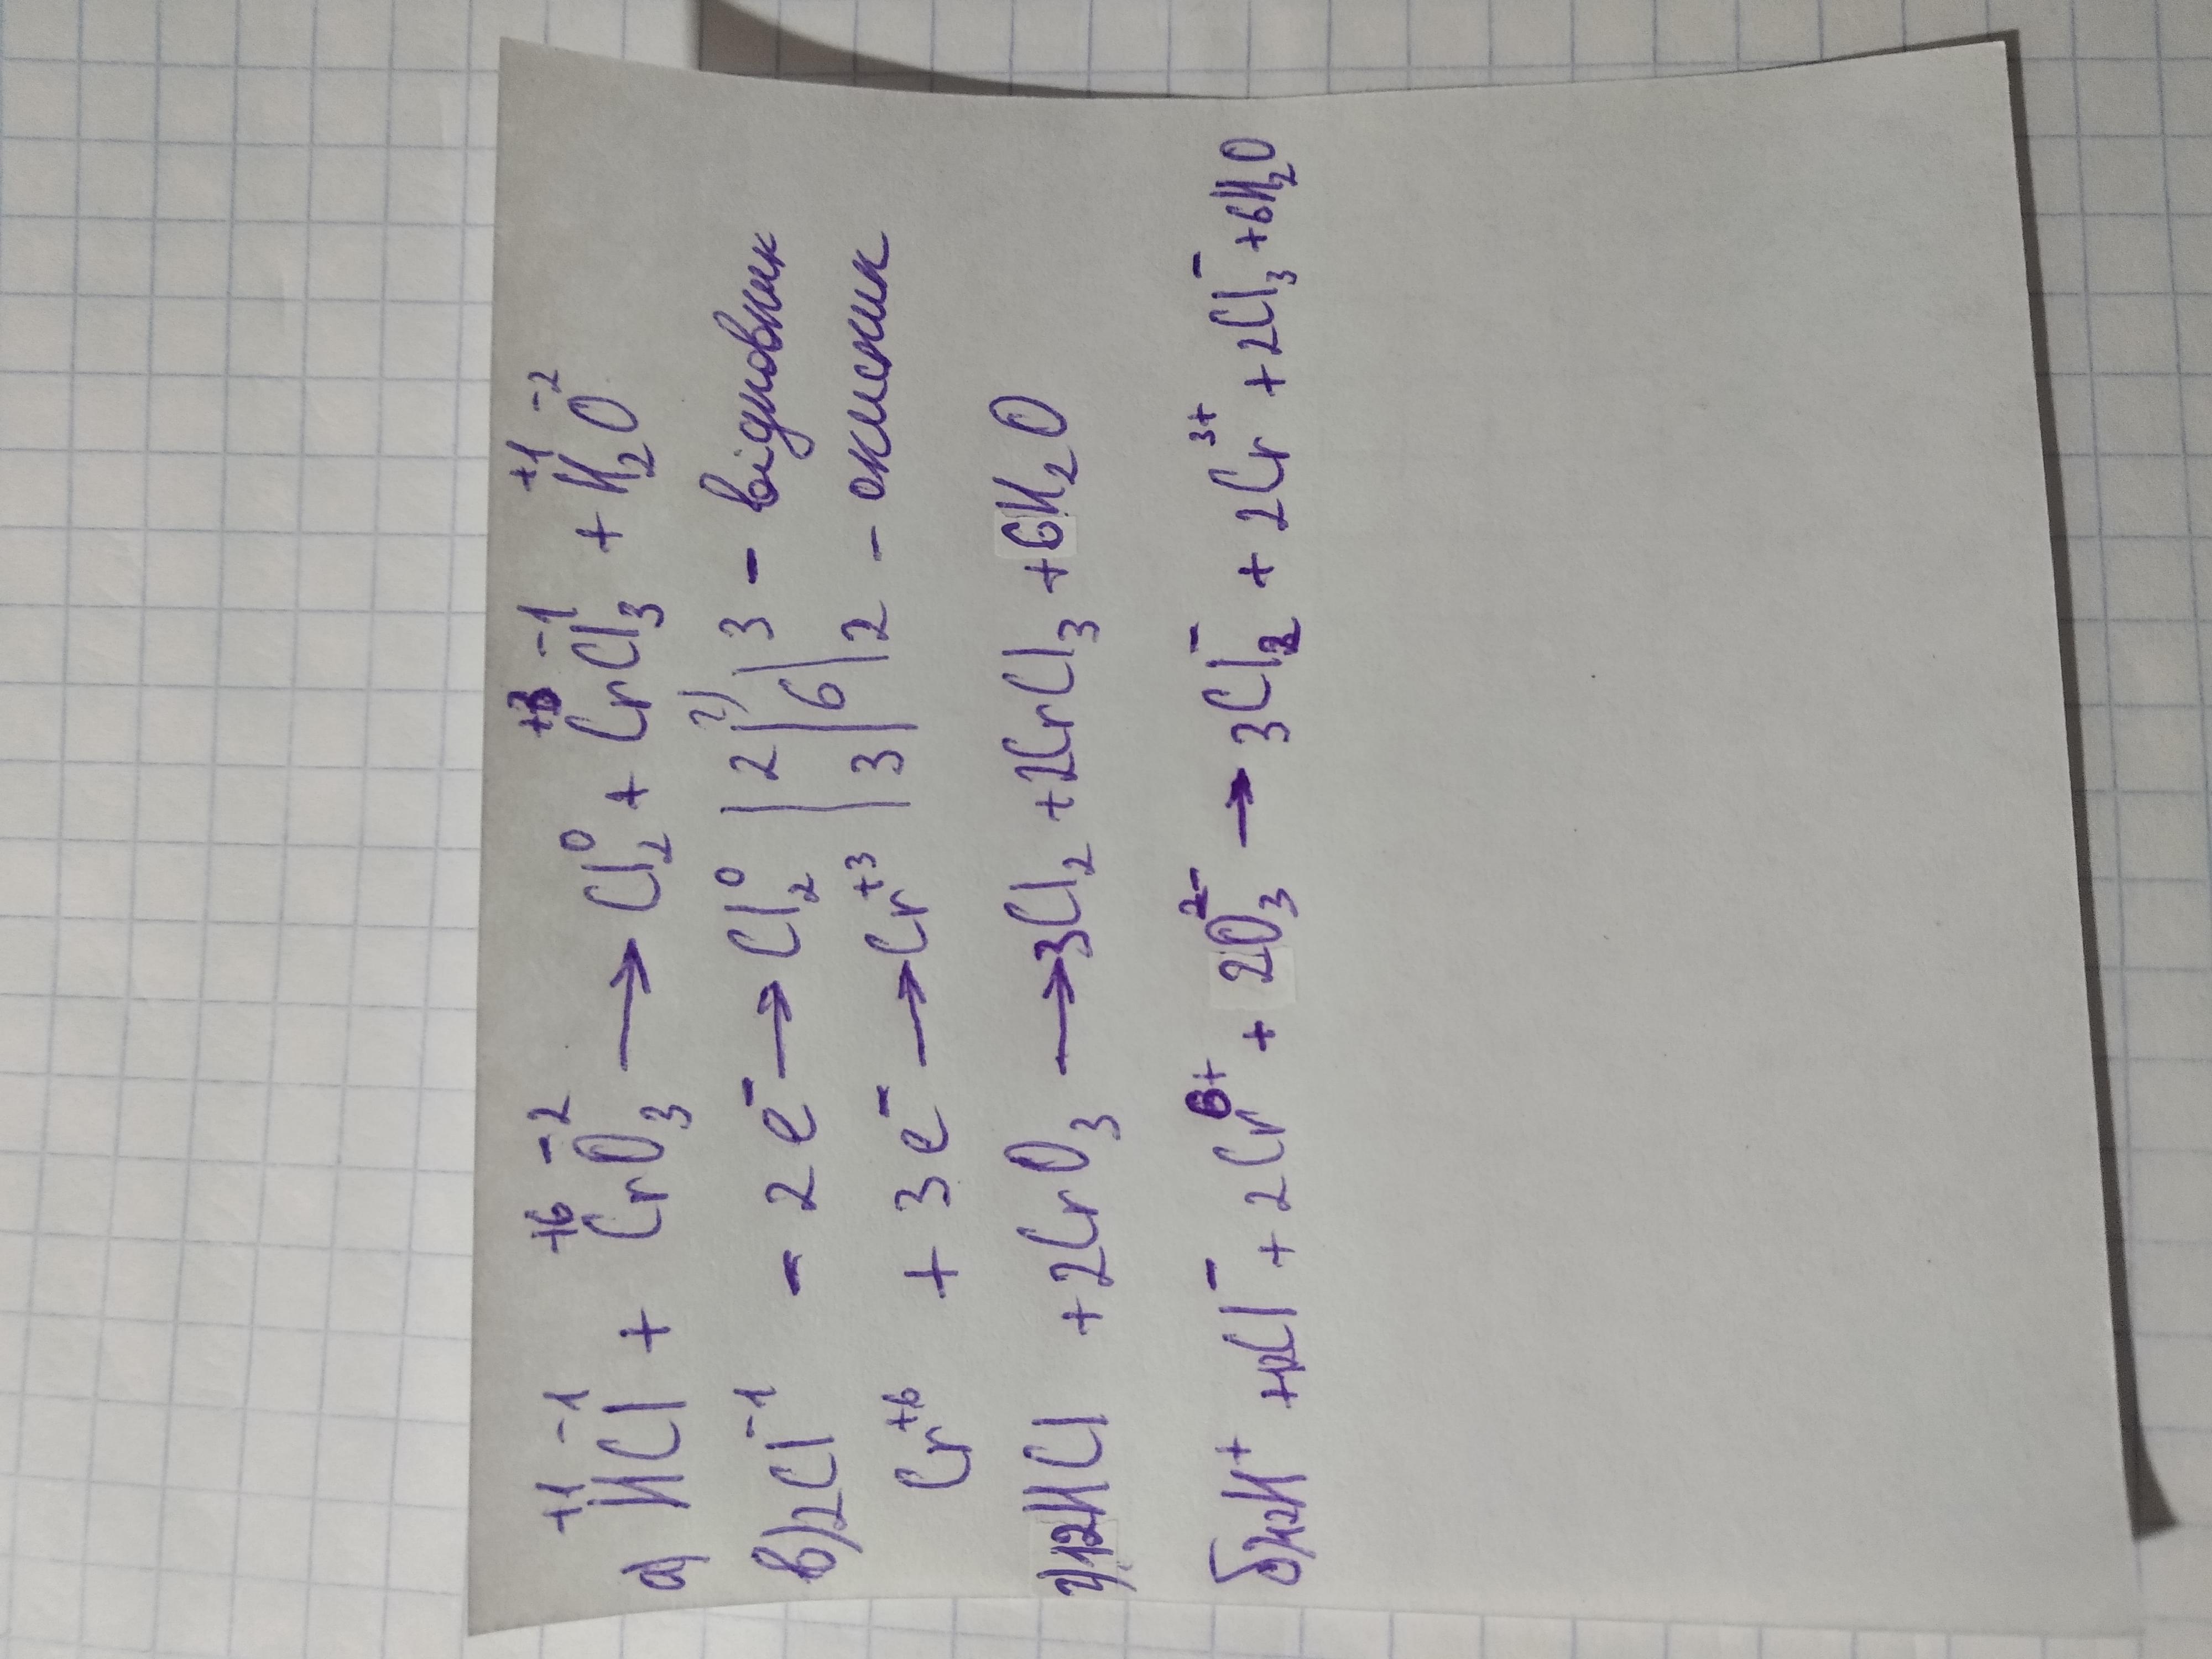 а) H⁺¹Cl⁻¹ + Cr⁺⁶O₃⁻² → Cl₂⁰ + Cr⁺³Cl₃⁻¹ + H₂⁺¹O⁻²
в) 2Cl⁻¹ - 2e⁻ → Cl₂⁰ | 2 | | 3 - відновник
Cr⁺⁶ + 3e⁻ → Cr⁺³ | 3 | 6 | 2 - окисник
12HCl + 2CrO₃ → 3Cl₂ + 2CrCl₃ + 6H₂O
б) 12H⁺ + 12Cl⁻ + 2Cr⁶⁺ + 2O₃²⁻ → 3Cl₂⁻ + 2Cr³⁺ + 2Cl₃⁻ + 6H₂O